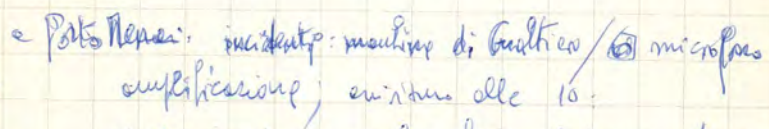 a Porto Marghera: incidente: macchina di Gualtiero / microfono
amplificazione; alle 10: